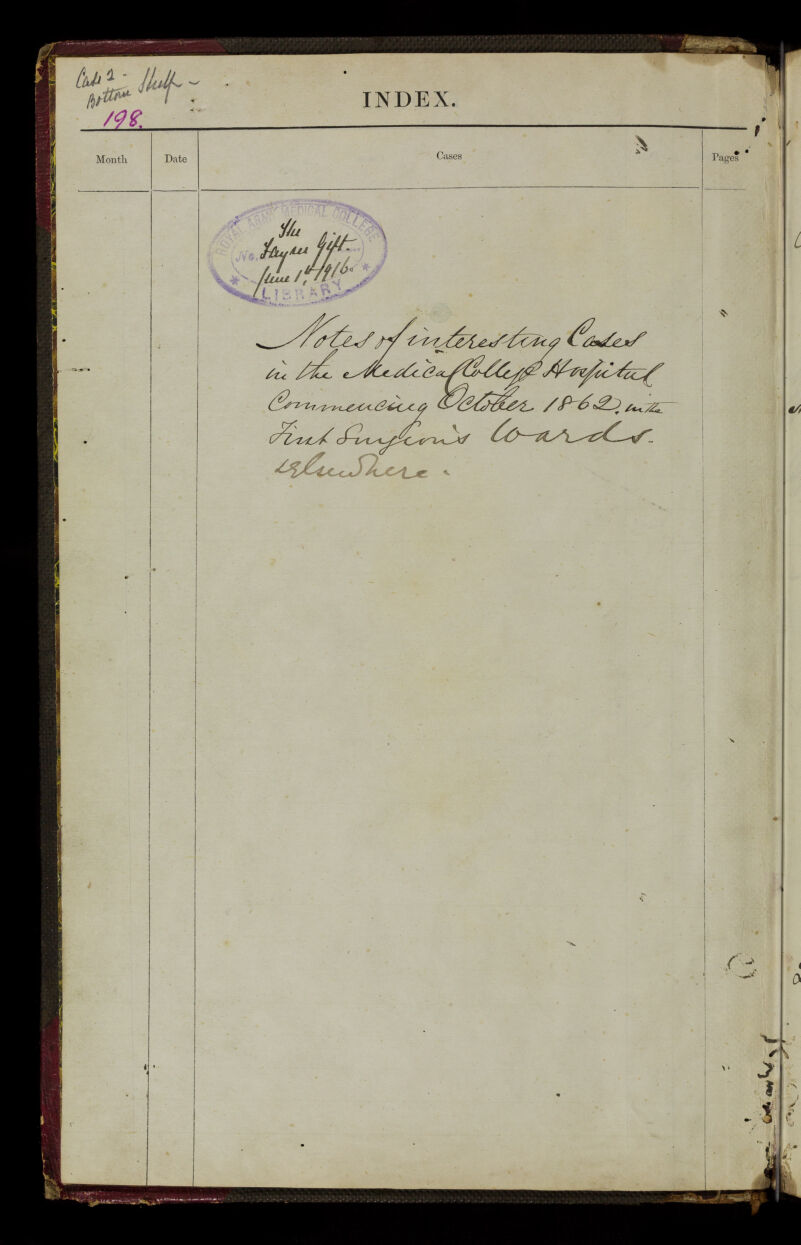 Case 2 -
Bottom Shelf -
198.
INDEX.
Month Date Cases Pages
ROYAL ARMY MEDICAL COLLEGE
The
No. Fayrer Gift.
June 1st, 1916.
LIBRARY
Notes of interesting Cases
in the Medical College Hospital
Commencing October 1862. in the
First Surgeon's Wards.
& Elsewhere.